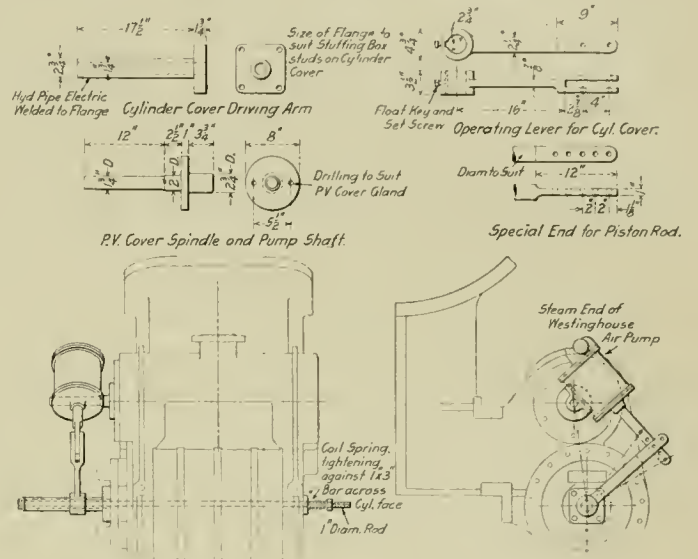 17½" 1¾"
2¾"
Hyd Pipe Electric
Welded to Flange
Cylinder Cover Driving Arm
Size of Flange to
suit Stuffing Box
studs on Cylinder
Cover
2¾"
9"
4¾"
3½"
Float Key and
Set Screw
16"
4"
Operating Lever for Cyl. Cover.
12" 2½" 1" 3¾"
8"
1¾"D.
2"D.
2¾"D.
Drilling to Suit
P.V. Cover Gland
5½"
P.V. Cover Spindle and Pump Shaft.
Diam to Suit
12"
2" 2"
Special End for Piston Rod.
Steam End of
Westinghouse
Air Pump
Coil Spring,
tightening
against 1"x3"
Bar across
Cyl. face
1" Diam. Rod